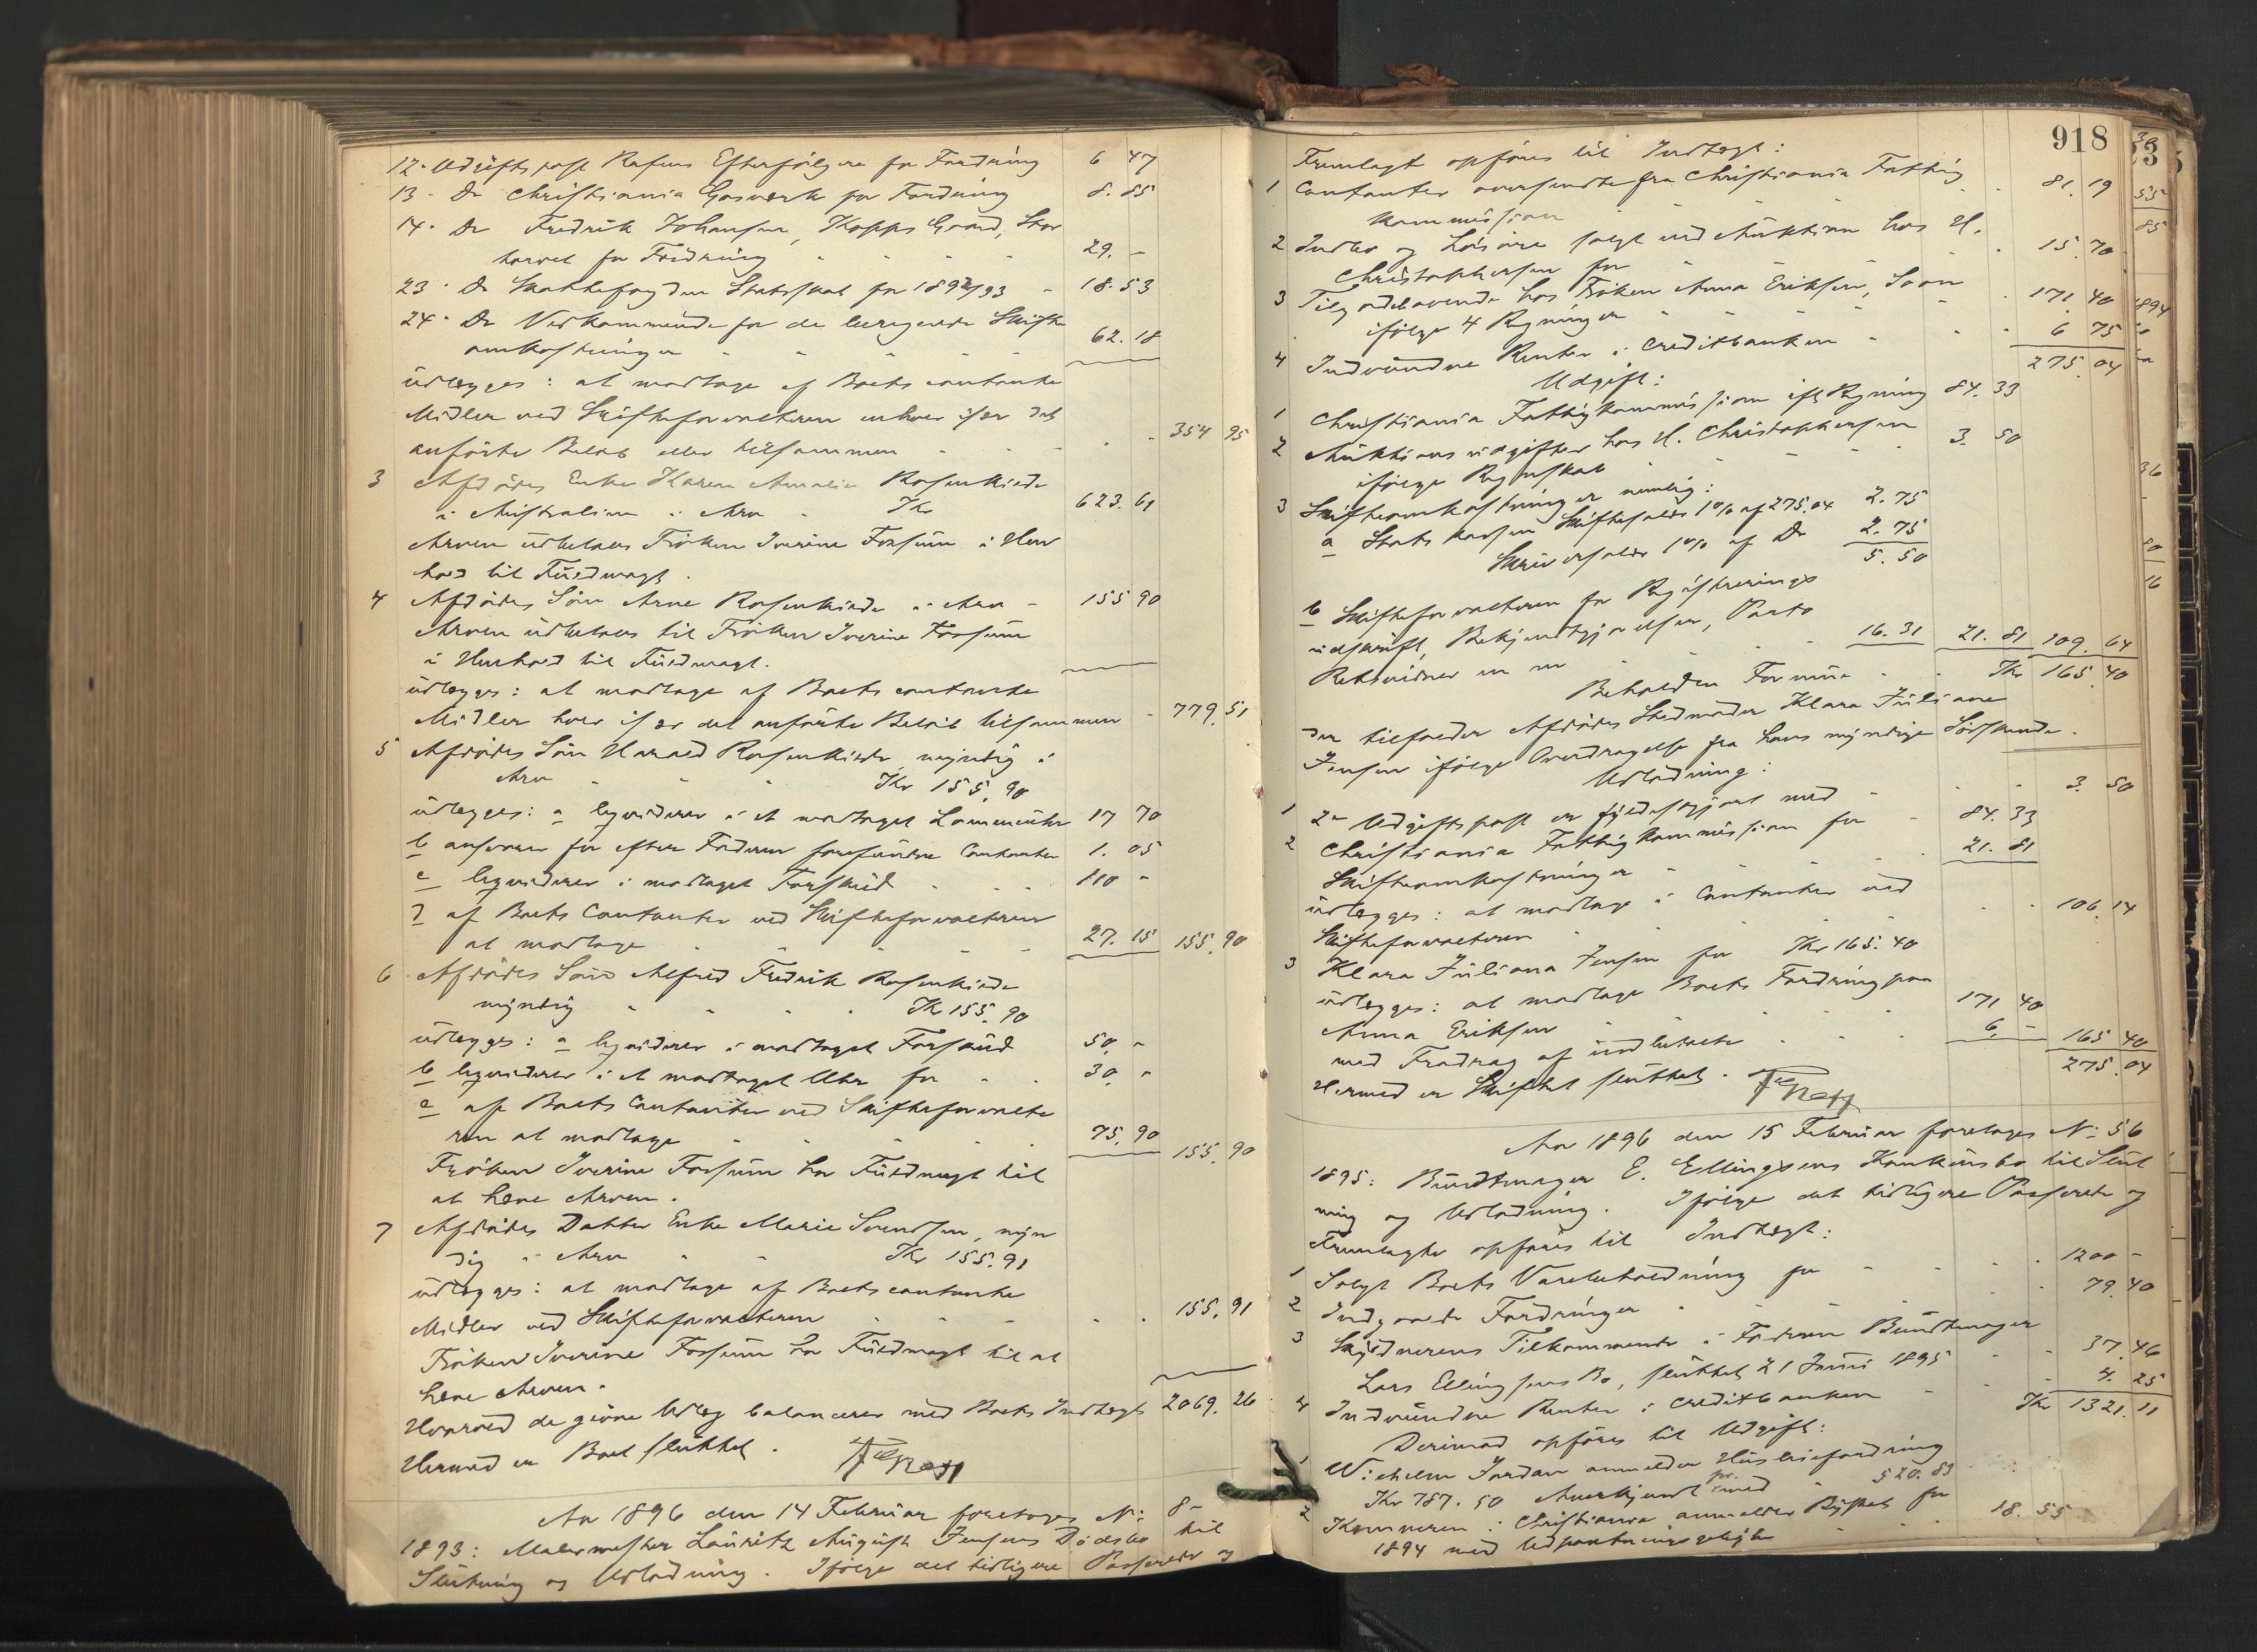 12. Udgiftspost Rasens Efterfölgere for Fordring 6 47
13. Do Christiania Gasverk for Fordring 8.85
14. Do Fredrik Johansen, Kopps Gaard, Stor
torvet for Fordring 29. -
23. Do Skattefogden Statsskat for 1892/93 - 18.53
24. Do Vedkommende for de beregnede Skifte
omkostninger 62.18
udlægges: at modtage af Boets contante
Midler ved Skifteforvalteren enhver især det
anförte Belöb eller tilsammen 354 95
3 Afdödes Enke Karen Amalie Rosenkilde
i Australien i Arv Kr 623.61
Arven udbetales Fröken Iverine Forsum i Hen
hold til Fuldmagt.
4 Afdödes Sön Arne Rosenkilde i Arv - 155 90
Arven udbetales til Fröken Iverine Forsum
i Henhold til Fuldmagt.
udlægges: at modtage af Boets contante
Midler hver især det anförte Belöb tilsammen - 779.51
5 Afdödes Sön Harald Rosenkilde, myndig i
Arv Kr 155.90
udlægges: a liqviderer i et modtaget Lommeuhr 17 70
b ansvarer for efter Faderen forefundne Contanter 1.05
c liqviderer i modtaget Forskud 110 -
d af Boets Contanter ved Skifteforvalteren
at modtage 27.15 155.90
6 Afdödes Sön Alfred Fredrik Rosenkilde
myndig Kr 155.90
udlægges: a liqviderer i modtaget Forskud 50. -
b liqviderer i et modtaget Uhr for 30. -
c af Boets Contanter ved Skifteforvalte
ren at modtage 75.90 155.90
Fröken Iverine Forsum har Fuldmagt til
at hæve Arven.
7 Afdödes Datter Enke Marie Svendsen, myn
dig i Arv Kr 155.91
udlægges: at modtage af Boets contante
Midler ved Skifteforvalteren 155.91
Fröken Iverine Forsum har Fuldmagt til at
hæve Arven.
Hvorved de givne Udlæg balancerer med Boets Indtægt 2069.26
Hermed er Boet sluttet.
Aar 1896 den 14 Februar foretoges No 8 -
1893: Malermester Lauritz August Jensens Dödsbo til
Slutning og Udlodning. Ifölge det tidligere Passerede og
918
Fremlagt opföres til Indtægt:
1 Contanter oversendte fra Christiania Fattig
kommission 81.19
2 Indbo og Lösöre solgt ved Auktion hos H.
Christophersen for 15.70
3 Tilgodehavende hos Fröken Anna Eriksen, Soon
ifölge 4 Regninger 171.40
4 Indvundne Renter i Creditbanken 6 75
275.04
Udgift:
1 Christiania Fattigkommission ifl Regning 84.33
2 Auktionsudgifter hos H. Christophersen
ifölge Regnskab 3.50
3 Skifteomkostninger nemlig:
a Statskassen Skiftesalær 1% af 275.04 2.75
Skriversalær 1% af Do 2.75
5.50
b Skifteforvalteren for Registrerings
udskrift, Bekjendtgjörelser, Porto
Retsvidner m m 16.31 21.81 109.64
Beholden Formue Kr 165.40
der tilfalder Afdödes Stedmoder Klara Juliane
Jensen ifölge Overdragelse fra hans myndige Södskende.
Udlodning:
1 2n Udgiftspost er fyldestgjort med 3.50
2 Christiania Fattigkommission for 84.33
Skifteomkostninger 21.81
udlægges: at modtage i Contanter ved
Skifteforvalteren 106.14
3 Klara Juliana Jensen for Kr 165.40
udlægges: at modtage Boets Fordring paa
Anna Eriksen 171 40
med Fradrag af indbetalte 6. - 165 40
Hermed er Skiftet sluttet. 275.04
Aar 1896 den 15 Februar foretoges No 56
1895: Bundtmager E. Ellingsens Konkursbo til Slut
ning og Udlodning. Ifölge det tidligere Passerede og
Fremlagte opföres til Indtægt:
1 Solgt Boets Varebeholdning for 1200 -
2 Indgaaede Fordringer 79.40
3 Skyldnerens Tilkommende i Faderen Bundtmager
Lars Ellingsens Bo, sluttet 21 Juni 1895 37.46
4 Indvundne Renter i Creditbanken 4.25
Kr 1321.11
Derimod opföres til Udgift:
1 Wilhelm Jordan anmeldte Husleiefordring
Kr 787.50 Anerkjendt pr. med 520.83
2 Kemneren i Christiania anmeldte Byskat for
1894 med Udpantningsgebyr 18.55